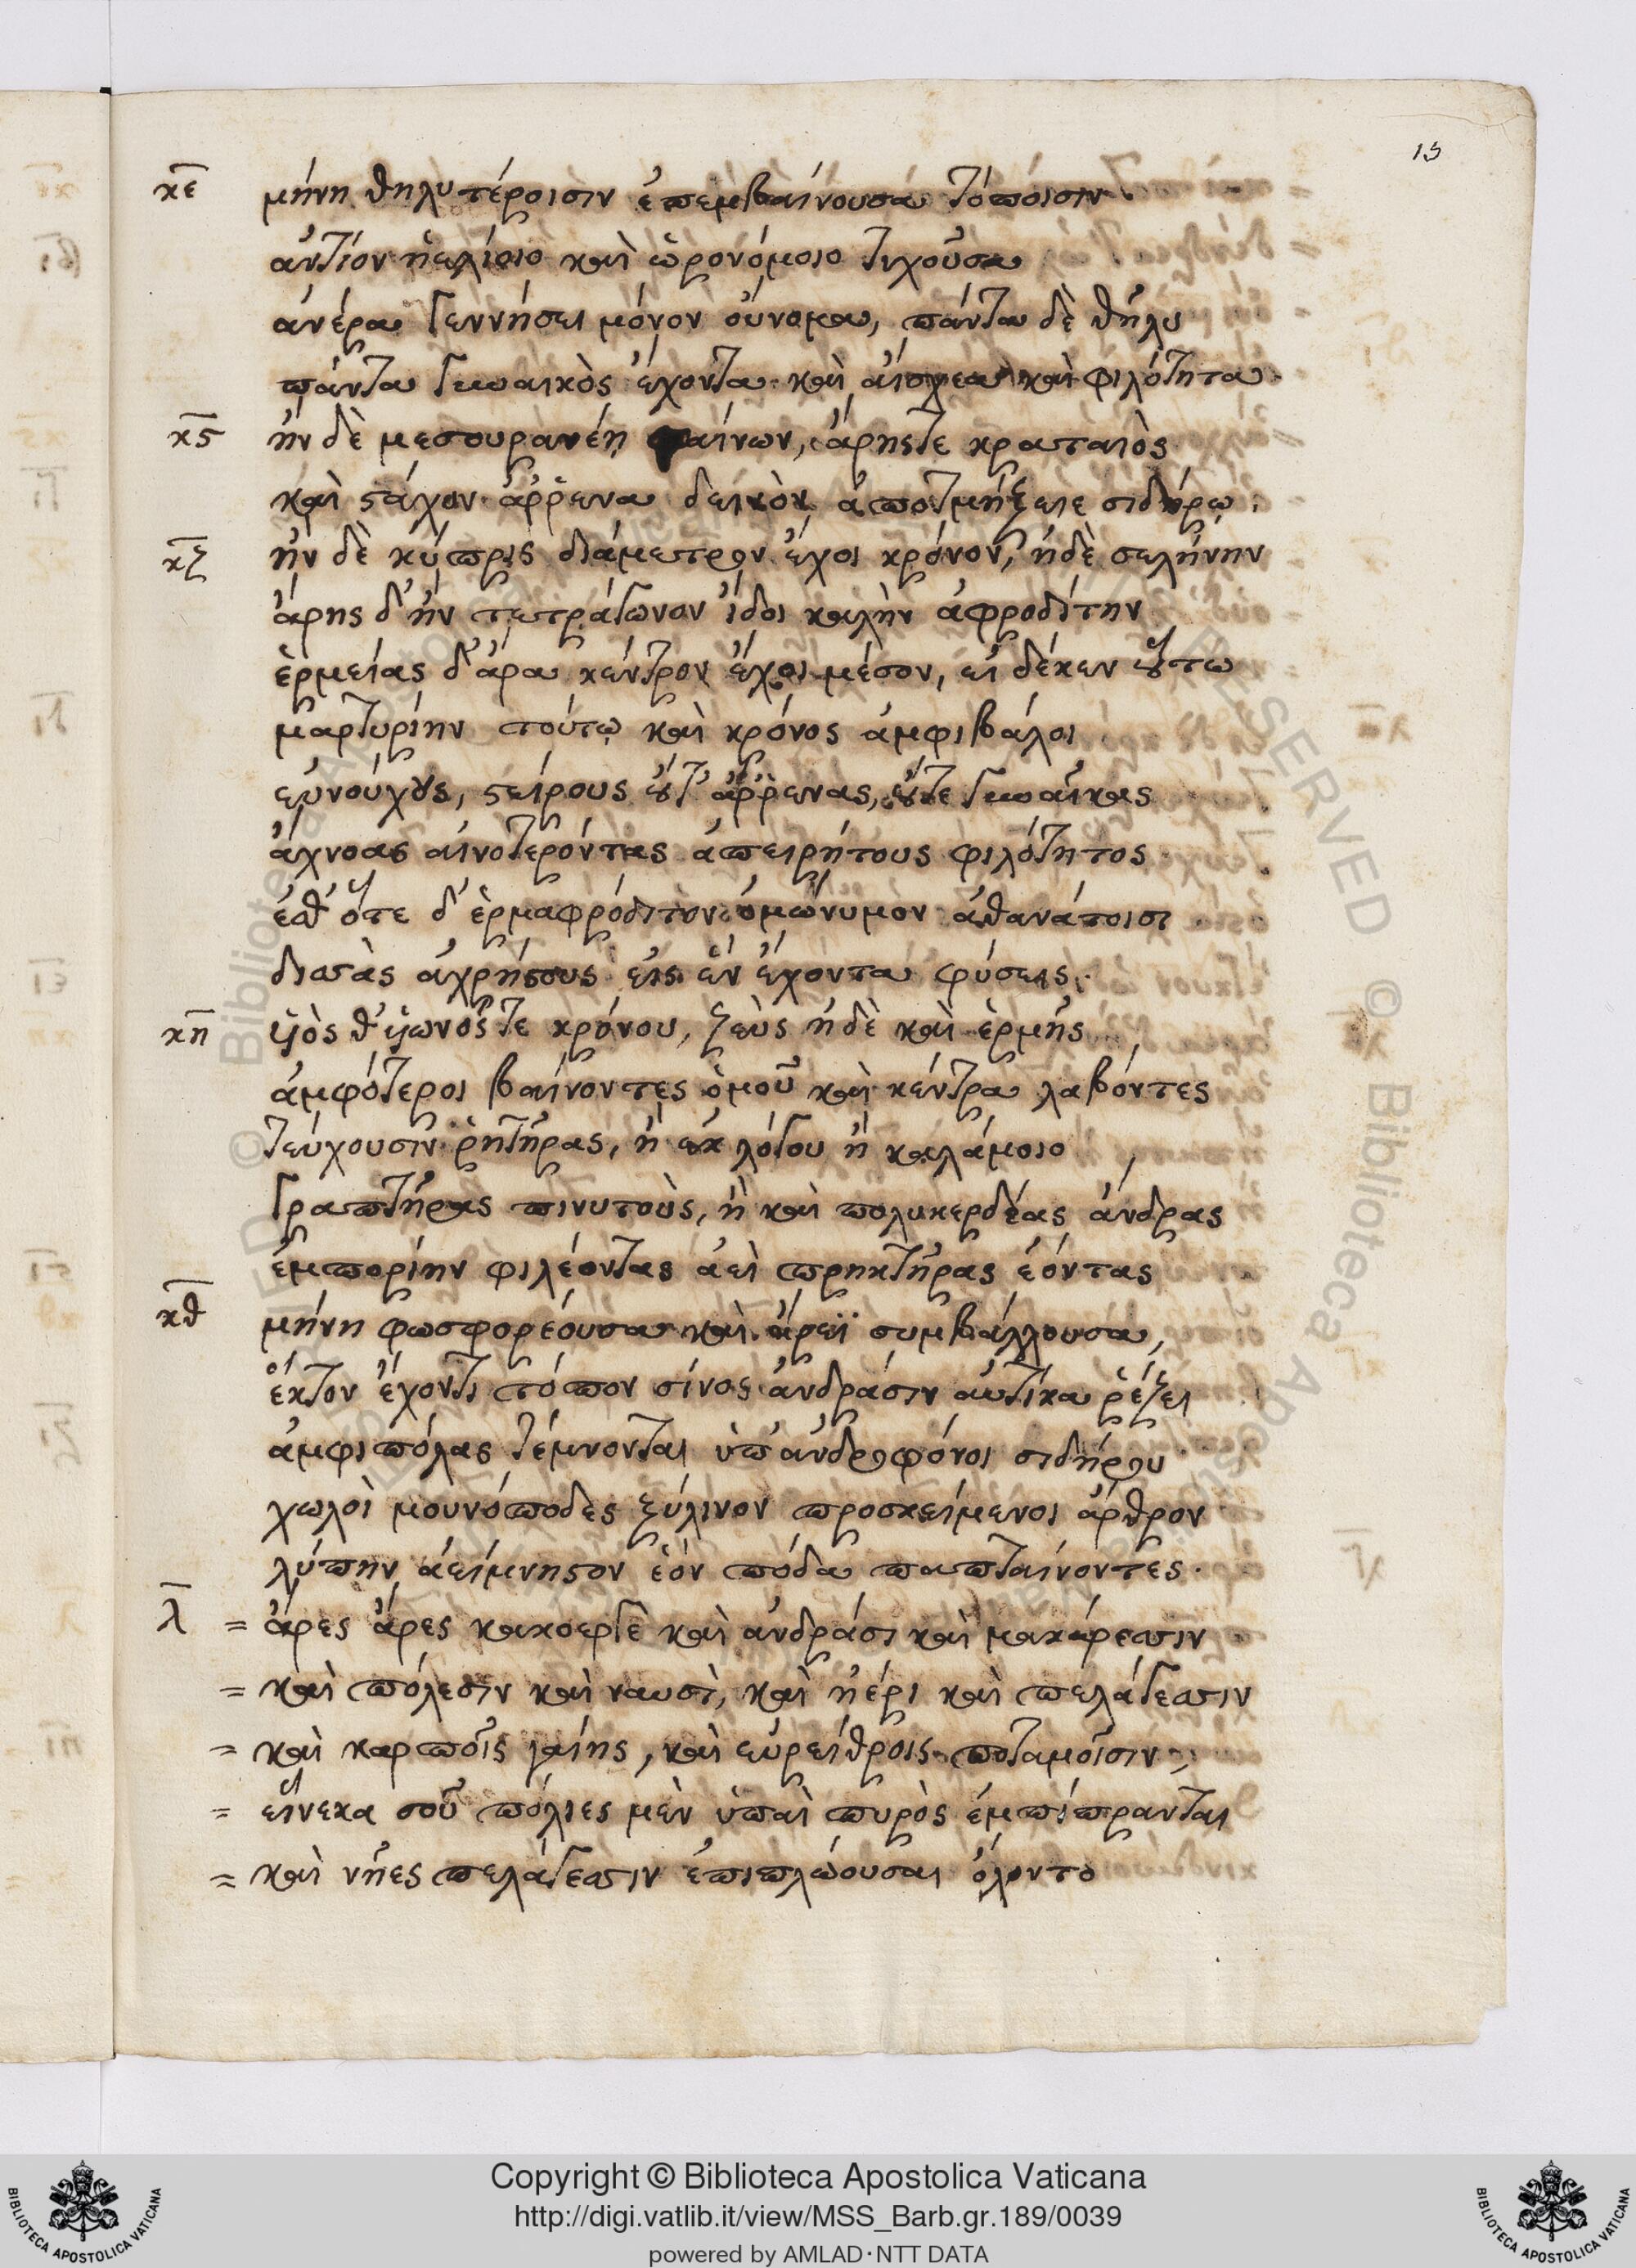 15
κε μήνη θηλυτέροισιν ἐπεμβαίνουσα τόποισιν
ἀντίον ἠελίοιο καὶ ὡρονόμοιο τυχοῦσα
ἀνέρα γεννήσει μόνον οὔνομα, πάντα δὲ θῆλυ
πάντα γυναικὸς ἔχοντα καὶ αἴσχεα καὶ φιλότητα.
κϛ ἢν δὲ μεσουρανέῃ φαίνων, ἄρης τε κραταιὸς
καὶ στάχυν ἄῤῥενα δεινὸν ἀποτμήξειε σιδήρῳ.
κζ ἢν δὲ κύπρις διάμετρον ἔχοι κρόνον, ἠδὲ σελήνην
ἄρης δ' ἢν τετράγωνον ἴδοι καλὴν ἀφροδίτην
ἑρμείας δ' ἄρα κέντρον ἔχοι μέσον, εἰ δέ κεν οὕτω
μαρτυρίην τούτῳ καὶ κρόνος ἀμφιβάλοι
εὐνούχους, στείρους οὔτ' ἄῤῥενας, οὔτε γυναῖκας
ἄχνοας αἰνοτερόντας ἀπειρήτους φιλότητος
ἔσθ' ὅτε δ' ἑρμαφρόδιτον ὁμώνυμον ἀθανάτοισι
δισσὰς ἀχρήστους εἰς ἓν ἔχοντα φύσεις.
κη υἱὸς θ' υἱωνός τε κρόνου, ζεὺς ἠδὲ καὶ ἑρμῆς
ἀμφότεροι βαίνοντες ὁμοῦ καὶ κέντρα λαβόντες
τεύχουσιν ῥητῆρας, ἢ ἐκ λόγου ἢ καλάμοιο
γραπτῆρας πινυτοὺς, ἢ καὶ πολυκερδέας ἄνδρας
ἐμπορίην φιλέοντας ἀεὶ πρηκτῆρας ἐόντας
κθ μήνη φωσφορέουσα καὶ ἄρεϊ συμβάλλουσα,
ἕκτον ἔχοντι τόπον σίνος ἀνδράσιν αὐτίκα ῥέζει
ἀμφιπόλας τέμνονται ὑπ' ἀνδροφόνοι σιδήρου
χωλοὶ μουνόποδες ξύλινον προσκείμενοι ἄρθρον
λύπην ἀείμνηστον ἑὸν πόδα παπταίνοντες.
λ = ἄρες ἄρες κακοεργὲ καὶ ἀνδράσι καὶ μακάρεσσιν
= καὶ πόλεσιν καὶ ναυσὶ, καὶ ἠέρι καὶ πελάγεσσιν
= καὶ καρποῖς γαίης, καὶ εὐρείθροις ποταμοῖσιν,
= εἵνεκα σοῦ πόλιες μὲν ὑπαὶ πυρὸς ἐμπίπρανται
= καὶ νῆες πελάγεσσιν ἐπιπλώουσαι ὄλοντο
Copyright © Biblioteca Apostolica Vaticana
http://digi.vatlib.it/view/MSS_Barb.gr.189/0039
powered by AMLAD·NTT DATA
BIBLIOTECA APOSTOLICA VATICANA
BIBLIOTECA APOSTOLICA VATICANA